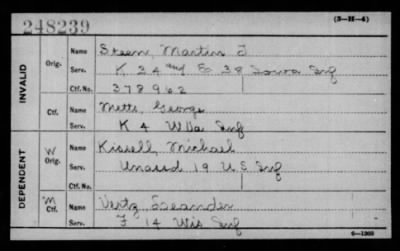 248239
(3-H-4)
INVALID
Orig.
Name Steen, Martin J
Serv. K 24 and E 38 Iowa Inf
Ctf. No. 378962
Ctf.
Name Metts, George
Serv. K 4 W Va Inf
DEPENDENT
W Orig.
Name Kissell, Michael
Serv. Unassd 19 U S Inf
M Ctf.
Name Vertz, Leander
Serv. F 14 Wis Inf
6-1303